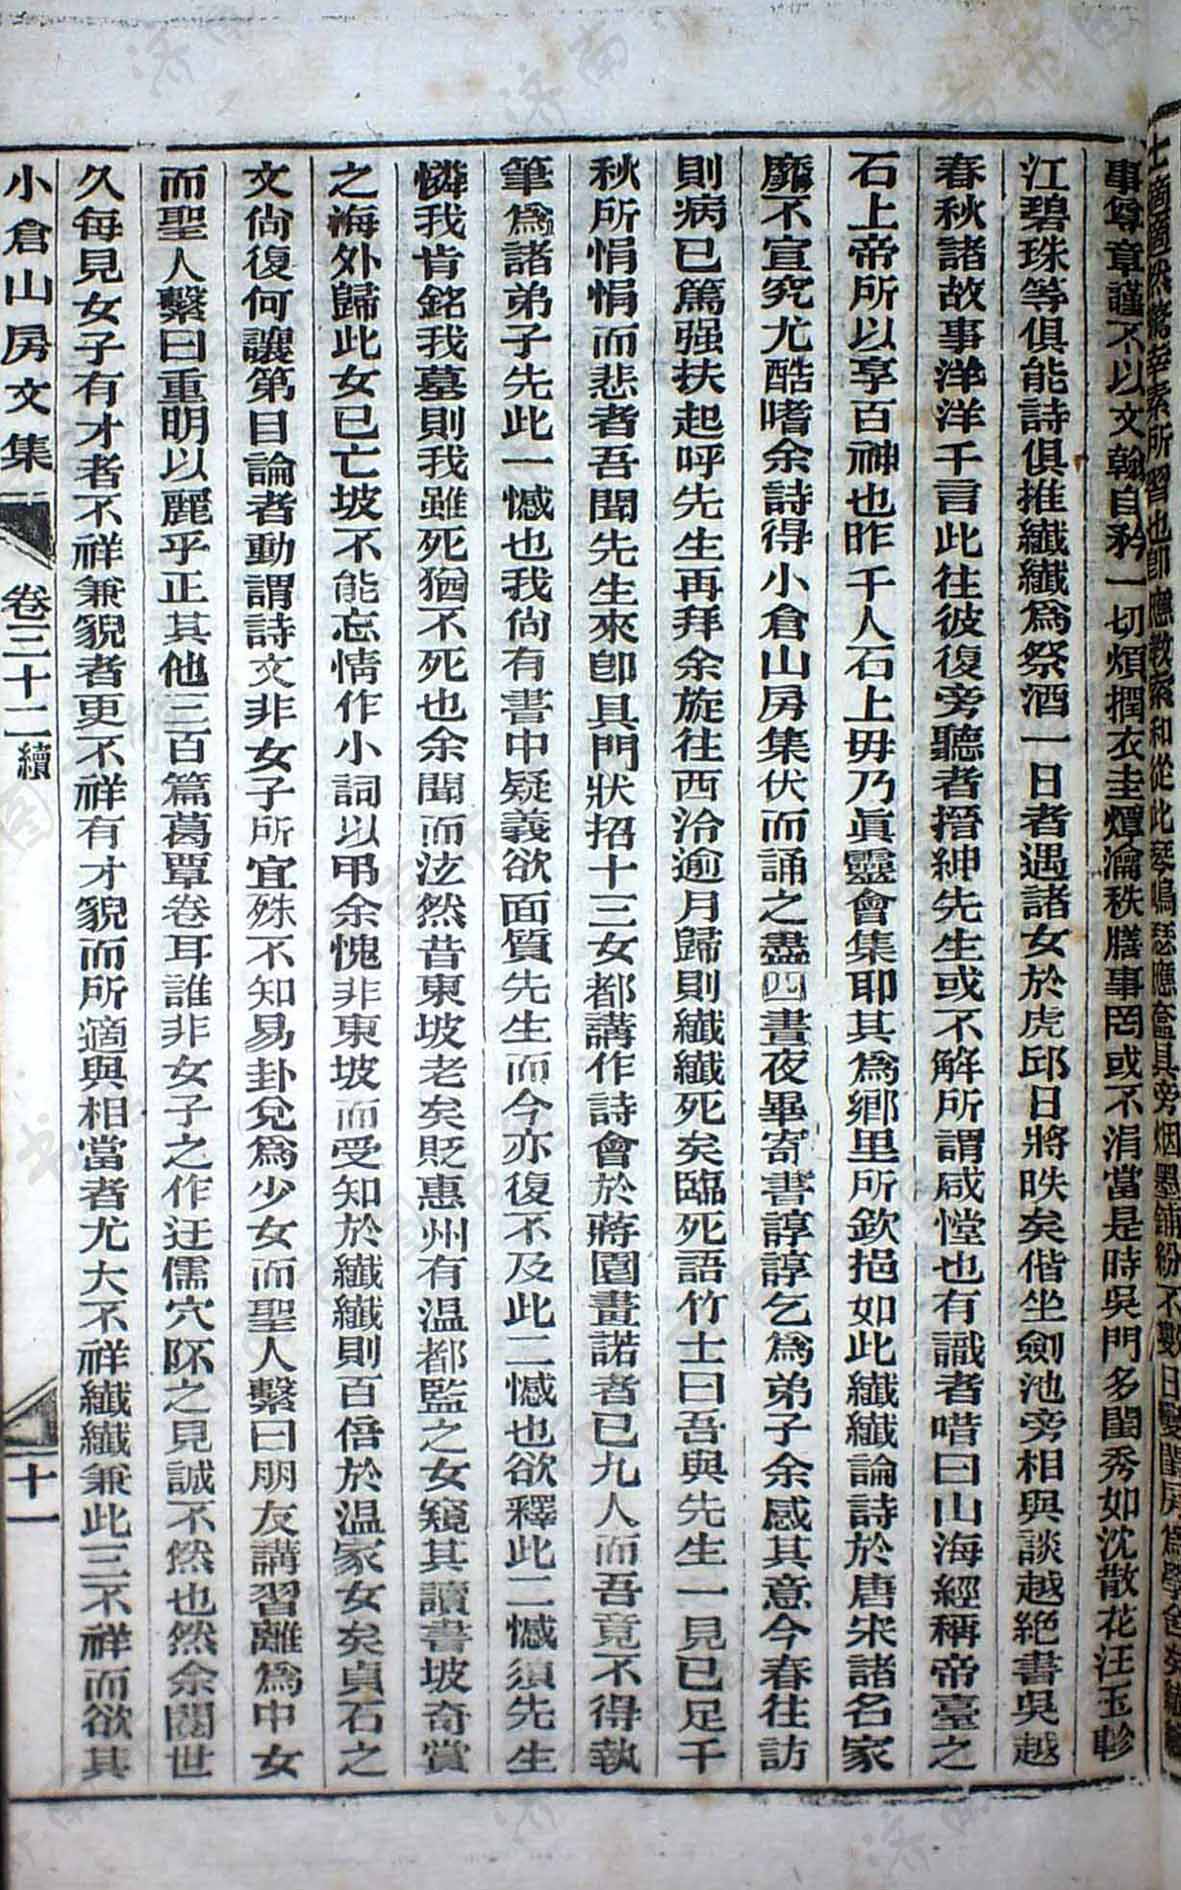 士適適然驚幸索所習也卽應教索和從此琴鳴瑟應奩具旁烟墨鋪紛不數日
事尊章謹不以文翰自矜一切煩撋衣圭燂瀹秩膳事罔或不涓當是時吳門多閨秀如沈散花汪玉軫
江碧珠等俱能詩俱推纖纖爲祭酒一日者遇諸女於虎邱日將昳矣偕坐劍池旁相與談越絕書吳越
春秋諸故事洋洋千言此往彼復旁聽者搢紳先生或不解所謂咸憆也有識者唶曰山海經稱帝臺之
石上帝所以享百神也昨千人石上毋乃眞靈會集耶其爲鄉里所欽挹如此纖纖論詩於唐宋諸名家
靡不宣究尤酷嗜余詩得小倉山房集伏而誦之盡四晝夜畢寄書諄諄乞爲弟子余感其意今春往訪
則病已篤强扶起呼先生再拜余旋往西洽逾月歸則纖纖死矣臨死語竹士曰吾與先生一見已足千
秋所悁悁而悲者吾聞先生來卽具門狀招十三女都講作詩會於蔣園畫諾者已九人而吾竟不得執
筆爲諸弟子先此一憾也我尙有書中疑義欲面質先生而今亦復不及此二憾也欲釋此二憾須先生
憐我肯銘我墓則我雖死猶不死也余聞而泫然昔東坡老矣貶惠州有温都監之女窺其讀書坡奇賞
之海外歸此女已亡坡不能忘情作小詞以弔余愧非東坡而受知於纖纖則百倍於温家女矣貞石之
文尙復何讓第目論者動謂詩文非女子所宜殊不知易卦兌爲少女而聖人繫曰朋友講習離爲中女
而聖人繫曰重明以麗乎正其他三百篇葛覃卷耳誰非女子之作迂儒穴阫之見誠不然也然余閱世
久每見女子有才者不祥兼貌者更不祥有才貌而所適與相當者尤大不祥纖纖兼此三不祥而欲其
小倉山房文集 卷三十二續 十一